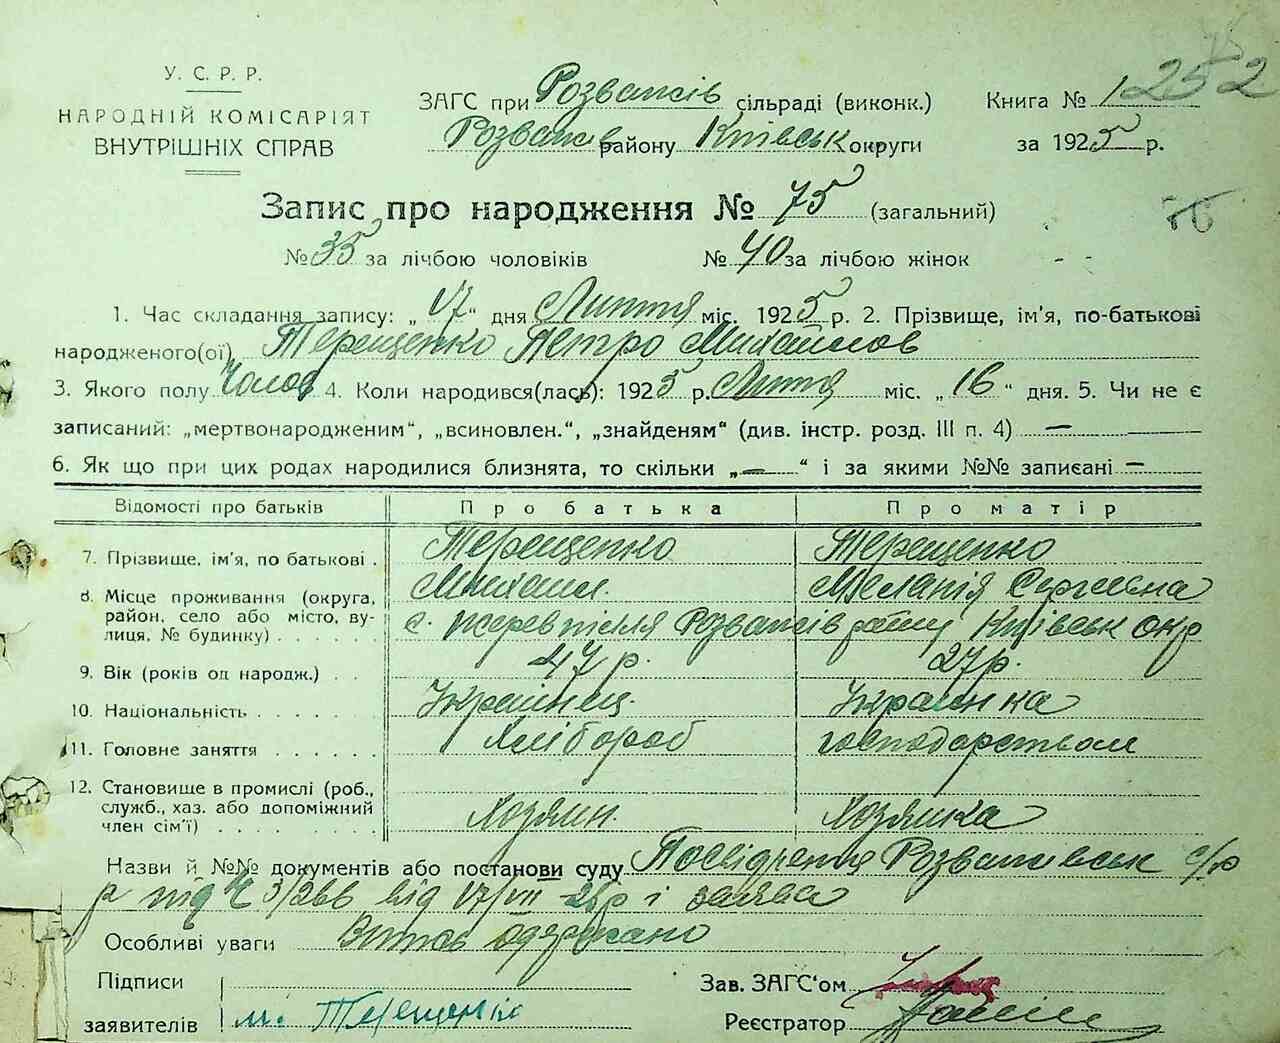 У. С. Р. Р.
НАРОДНІЙ КОМІСАРІЯТ
ВНУТРІШНІХ СПРАВ
ЗАГС при Розважів сільраді (виконк.)
Розваж району Київськ округи
Книга № 1 252
за 1925 р.
Запис про народження № 75 (загальний)
№ 35 за лічбою чоловіків № 40 за лічбою жінок
1. Час складання запису: „17“ дня Липня міс. 1925 р. 2. Прізвище, ім'я, по-батькові
народженого(ої) Терещенко Петро Михайлов
3. Якого полу Чолов 4. Коли народився(лась): 1925 р. Липня міс. „16“ дня. 5. Чи не є
записаний: „мертвонародженим“, „всиновлен.“, „знайденям“ (див. інстр. розд. III п. 4) —
6. Як що при цих родах народилися близнята, то скільки „—“ і за якими №№ записані —
Відомості про батьків Про батька Про матір
7. Прізвище, ім'я, по батькові . Терещенко Терещенко
Михаил. Меланія Сергеевна
8. Місце проживання (округа,
район, село або місто, ву-
лиця, № будинку) . . . . .
с. Розважів району Київськ окр
9. Вік (років од народж.) . . 47 р. 27 р.
10. Національність . . . . . . Українец. Українка
11. Головне заняття . . . . . Хлібороб господарством
12. Становище в промислі (роб.,
служб., хаз. або допоміжний
член сім'ї) . . . . . . . .
Хозяин. Хозяйка
Назви й №№ документів або постанови суду Розважівськ с/р
р під Ч 3/266 від 17/VII - 25 р і заява
Особливі уваги Витяг одержано
Підписи
заявителів М. Терещенко
Зав. ЗАГС'ом
Реєстратор